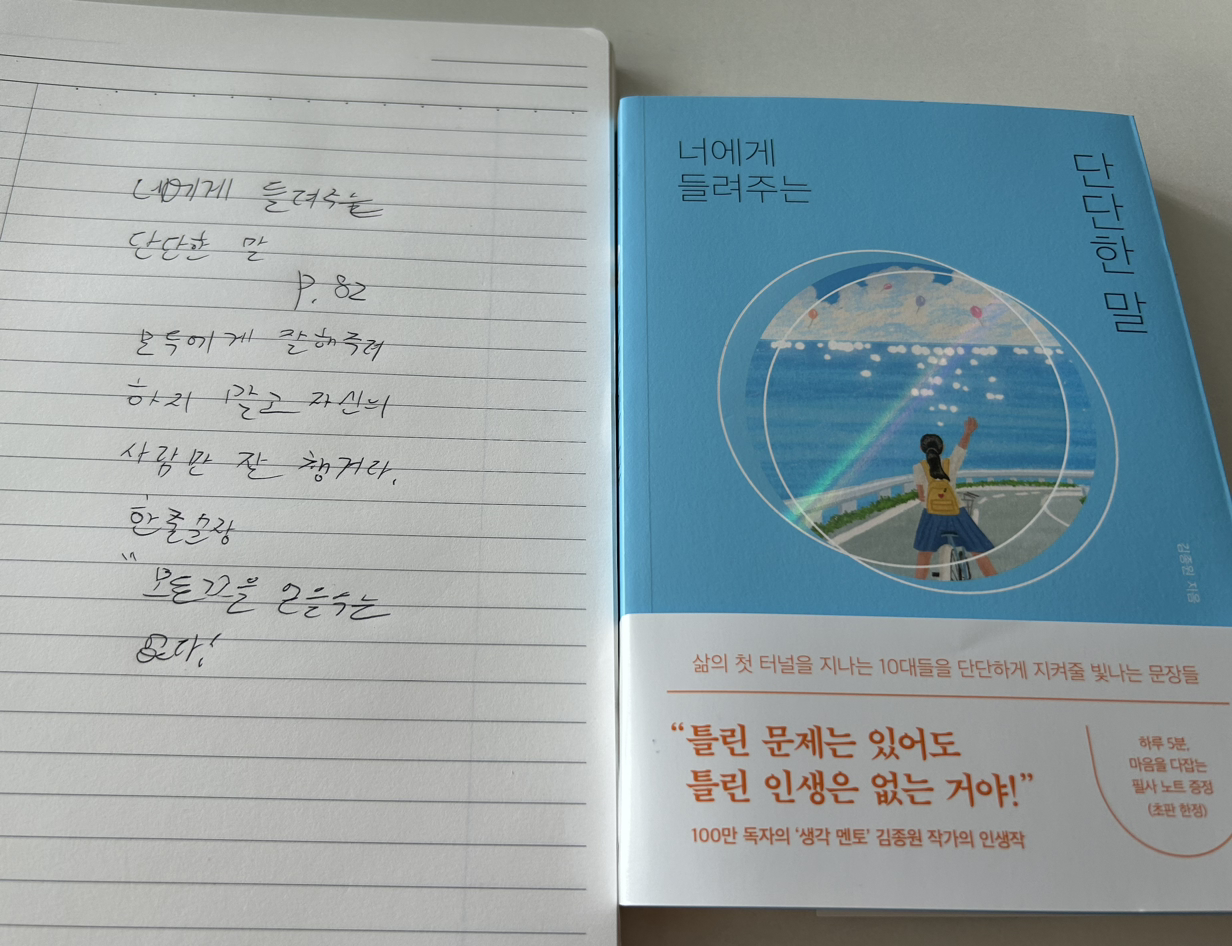 너에게 들려주는
단단한 말
p. 82
모두에게 잘해주려
하지 말고 자신의
사람만 잘 챙겨라.
한줄소장
"모든 것을 얻을수는
없다!
너에게
들려주는
단단한 말
김종원 지음
삶의 첫 터널을 지나는 10대들을 단단하게 지켜줄 빛나는 문장들
“틀린 문제는 있어도
틀린 인생은 없는 거야!”
100만 독자의 ‘생각 멘토’ 김종원 작가의 인생작
하루 5분,
마음을 다잡는
필사 노트 증정
(초판 한정)